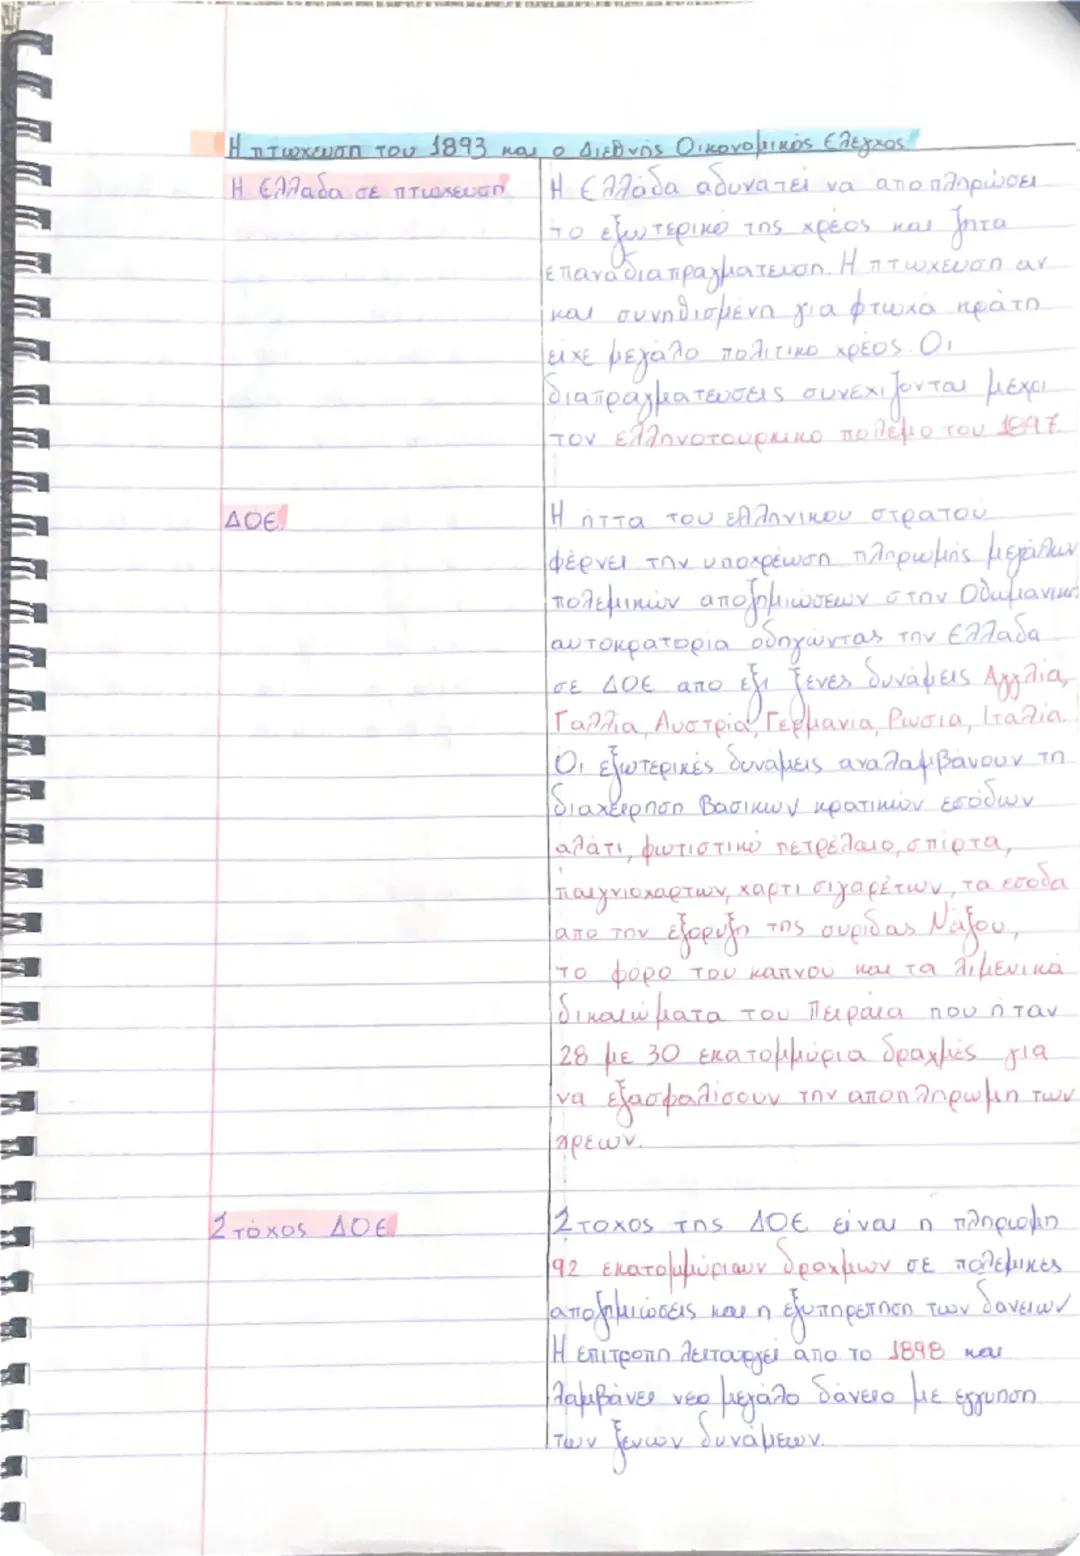 Η πτωχευση του 1893 και ο Διεθνής Οικονομικός Ελεγχος
Η Ελλαδα σε πτωχευση
Η Ελλάδα αδυνατεί να αποπληρώσει
το εξωτερικό της χρέος και ζητα
επαναδιαπραγματευση. Η πτωχευση αν
και συνηθισμένη για φτωχά κράτη
είχε μεγάλο πολιτικό χρέος. Οι
διαπραγματευσεις συνεχιζονται μέχρι
τον ελληνοτουρκικο πολεμο του 1897.
ΔΟΕ
Η ήττα του ελληνικου στρατου
φέρνει την υποχρέωση πληρωμής μεγάλων
πολεμικών αποζημιώσεων στην Οθωμανικη
αυτοκρατορία οδηγώντας την Ελλαδα
σε ΔΟΕ απο εξι ξενες δυνάμεις Αγγλία,
Γαλλία, Αυστρία, Γερμανια, Ρωσια, Ιταλία.
Οι εξωτερικές δυνάμεις αναλαμβάνουν τη
διαχειρηση Βασικων κρατικών εσόδων
αλάτι, φωτιστικό πετρέλαιο, σπίρτα,
παιγνιοχαρτων, χαρτι σιγαρέτων, τα εσοδα
απο την εξορυξη της συριδας Νάξου,
το φόρο του καπνού και τα λιμενικά
δικαιώματα του Πειραια που ήταν
28 με 30 εκατομμύρια δραχμές για
να εξασφαλίσουν την αποπληρωμη των
χρεων.
Στόχος ΔΟΕ
Στοχος της ΔΟΕ είναι η πληρωμη
92 εκατομμύριων δραχμων σε πολεμικες
αποζημιώσεις και η εξυπηρετηση των δανειων
Η επιτροπη λειτουργεί απο το 1898 και
λαμβάνει νεο μεγάλο δάνειο με εγγυηση
των ξενων δυνάμεων.